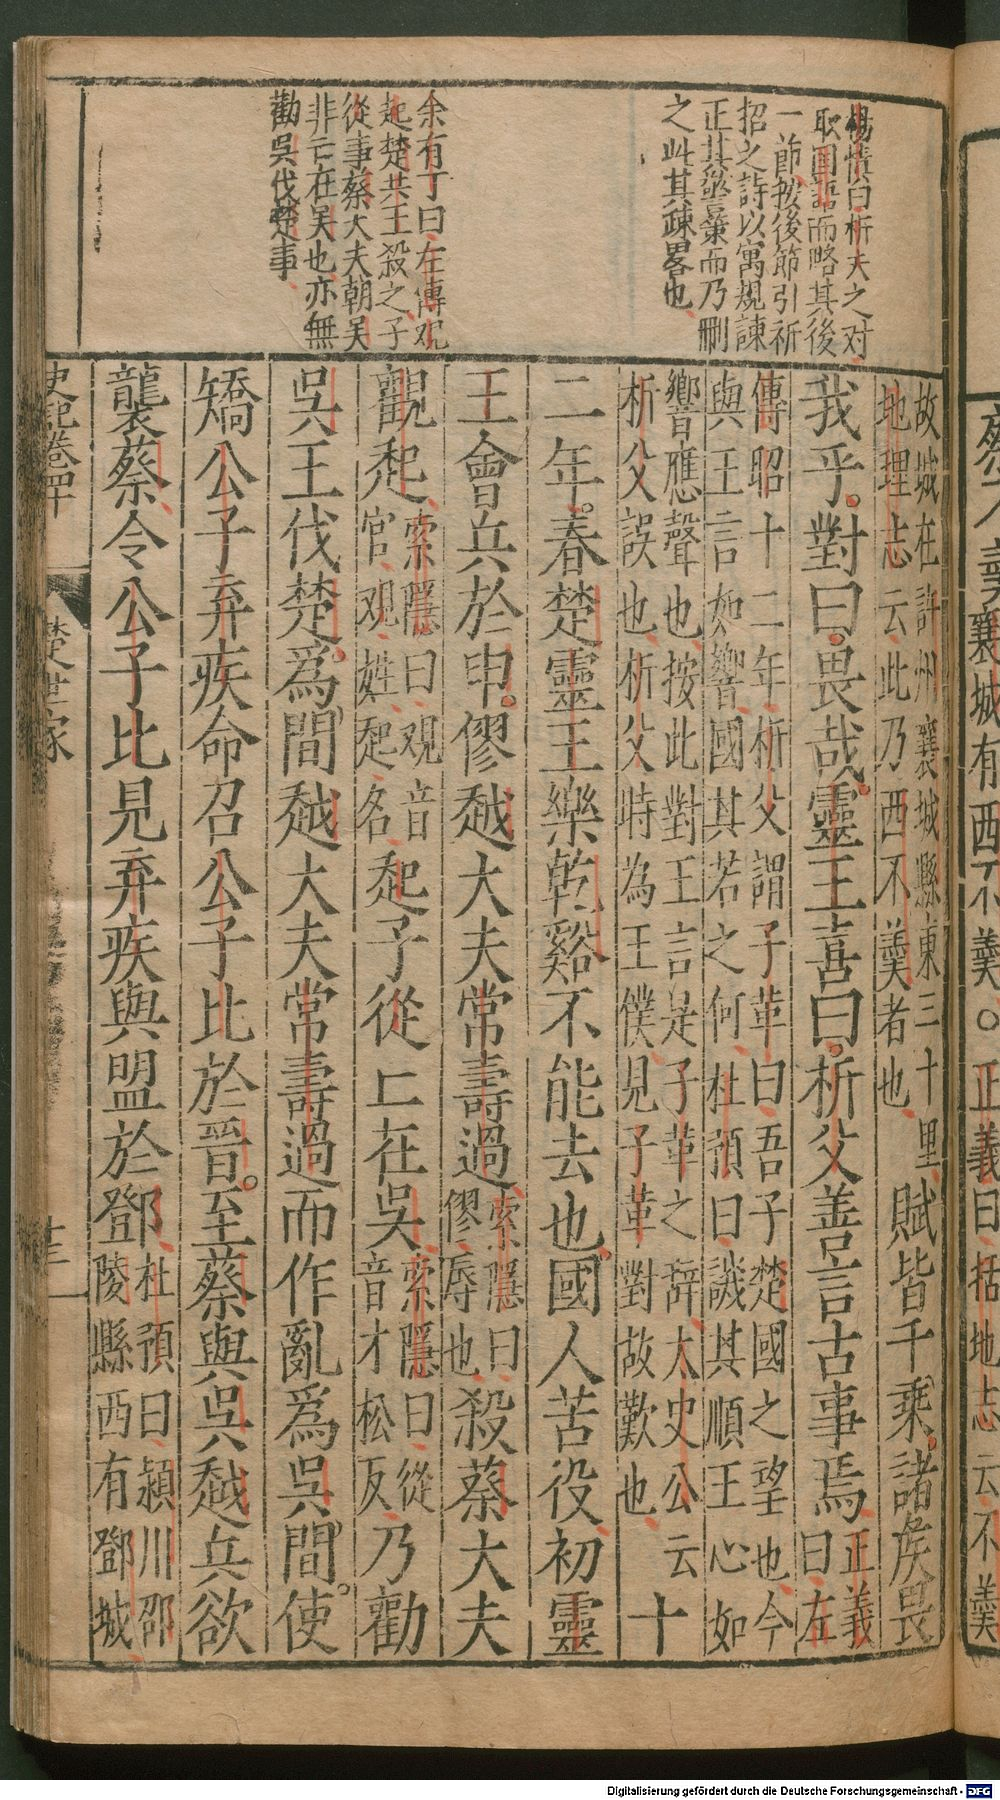 楊慎曰析夫之对
取国語而略其後
一節按後節引祈
招之詩以寓規諫
正其警策而乃刪
之此其疎畧也
余有丁曰左傳观
起楚共王殺之子
從事蔡大夫朝吴
非亡在吴也亦無
勸吳伐楚事
故城在許州襄城縣東三十里
地理志云此乃西不羹者也
賦皆千乘諸矦畏
我乎對曰畏哉靈王喜曰析父善言古事焉
正義
曰左
傳昭十二年析父謂子革曰吾子楚國之望也今
與王言如響國其若之何杜預曰譏其順王心如
響應聲也按此對王言是子革之辞太史公云
析父誤也析父時為王僕見子革對故歎也
十
二年春楚靈王樂乾谿不能去也國人苦役初靈
王會兵於申僇越大夫常壽過
索隱曰
僇辱也
殺蔡大夫
觀起
索隱曰观音
官观姓起名
起子從亡在吳
索隱曰從
音才松反
乃勸
吳王伐楚爲間越大夫常壽過而作亂爲吳間使
矯公子弃疾命召公子比於晉至蔡與吳越兵欲
襲蔡令公子比見弃疾與盟於鄧
杜預曰潁川邵
陵縣西有鄧城
史記卷四十
楚世家
十三
襄城有西不羹○正義曰括地志云不羹
Digitalisierung gefördert durch die Deutsche Forschungsgemeinschaft - DFG